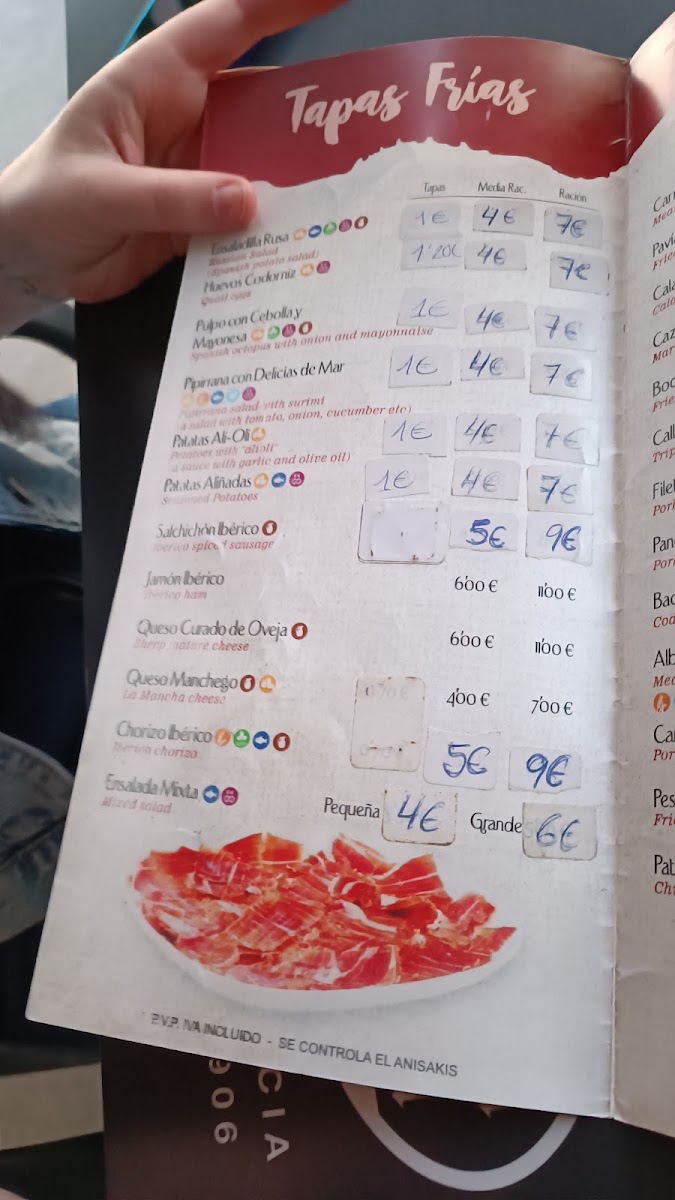 Tapas Frías
Tapas Media Rac. Ración
Ensaladilla Rusa 1€ 4€ 7€
Russian Salad
(Spanish potato salad)
Huevos Codorniz 1'20€ 4€ 7€
Quail eggs
Pulpo con Cebolla y
Mayonesa 1€ 4€ 7€
Spanish octopus with onion and mayonnaise
Pipirrana con Delicias de Mar 1€ 4€ 7€
Pipirrana salad with surimi
(a salad with tomato, onion, cucumber etc)
Patatas Ali-Oli 1€ 4€ 7€
Potatoes with "alioli"
(a sauce with garlic and olive oil)
Patatas Aliñadas 1€ 4€ 7€
Seasoned Potatoes
Salchichón Ibérico 5€ 9€
Iberico spiced sausage
Jamón Ibérico 6'00 € 11'00 €
Iberico ham
Queso Curado de Oveja 6'00 € 11'00 €
Sheep mature cheese
Queso Manchego 4'00 € 7'00 €
La Mancha cheese
Chorizo Ibérico 5€ 9€
Iberico chorizo
Ensalada Mixta Pequeña 4€ Grande 6€
Mixed salad
P.V.P. IVA INCLUIDO - SE CONTROLA EL ANISAKIS
CIA
906
Car
Mea
Pavi
Frie
Cala
Cala
Caz
Mar
Boq
Frie
Call
Trip
Filet
Pork
Pan
Por
Bac
Cod
Alb
Mea
Car
Por
Pes
Frie
Pat
Chi